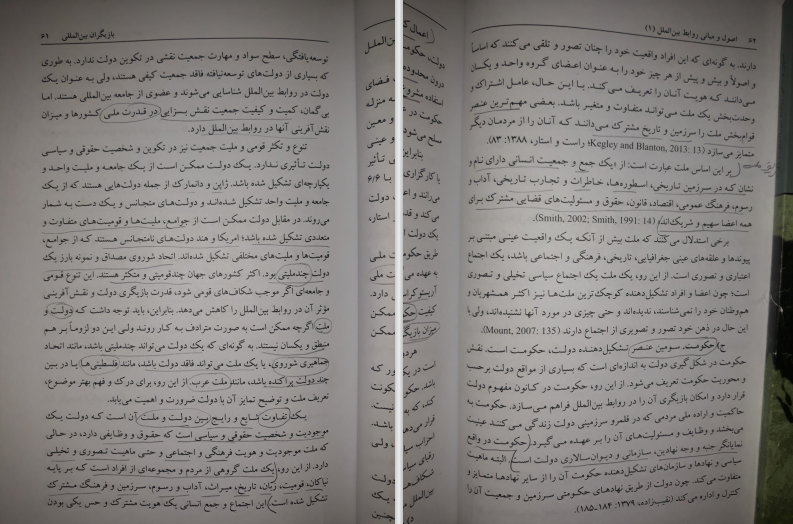 بازیگران بین‌المللی ۶۱
توسعه‌یافتگی، سطح سواد و مهارت جمعیت نقشی در تکوین دولت ندارد. به طوری
که بسیاری از دولت‌های توسعه‌نیافته فاقد جمعیت کیفی هستند، ولی به عنوان یک
دولت در روابط بین‌الملل شناسایی می‌شوند و عضوی از جامعه بین‌المللی هستند. اما
بی‌گمان، کمیت و کیفیت جمعیت نقش بسزایی در قدرت ملی کشورها و میزان
نقش‌آفرینی آنها در روابط بین‌الملل دارد.
تنوع و تکثر قومی و ملیت جمعیت نیز در تکوین و شخصیت حقوقی و سیاسی
دولت تأثیری ندارد. یک دولت ممکن است از یک جامعه و ملیت واحد و
یکپارچه‌ای تشکیل شده باشد. ژاپن و دانمارک از جمله دولت‌هایی هستند که از یک
جامعه و ملیت واحد تشکیل شده‌اند و دولت‌های متجانس و یک دست به شمار
می‌روند. در مقابل دولت ممکن است از جوامع، ملیت‌ها و قومیت‌های متفاوت و
متعددی تشکیل شده باشد؛ امریکا و هند دولت‌های نامتجانس هستند که از جوامع،
قومیت‌ها و ملیت‌های مختلفی تشکیل شده‌اند. اتحاد شوروی مصداق و نمونه بارز یک
دولت چندملیتی بود. اکثر کشورهای جهان چندقومیتی و متکثر هستند. این تنوع قومی
و جامعه‌ای اگر موجب شکاف‌های قومی شود، قدرت بازیگری دولت و نقش‌آفرینی
مؤثر آن در روابط بین‌الملل را کاهش می‌دهد. بنابراین، باید توجه داشت که دولت و
ملت اگرچه ممکن است به صورت مترادف به کار روند ولی این دو لزوماً بر هم
منطبق و یکسان نیستند. به گونه‌ای که یک دولت می‌تواند چندملیتی باشد، مانند اتحاد
جماهیری شوروی، یا یک ملت می‌تواند فاقد دولت باشد، مانند فلسطینی‌ها یا در بین
چند دولت پراکنده باشد، مانند ملت عرب. از این رو، برای درک و فهم بهتر موضوع،
تعریف ملت و توضیح تمایز آن با دولت ضرورت و اهمیت می‌یابد.
یک تفاوت شایع و رایج بین دولت و ملت آن است که دولت یک
موجودیت و شخصیت حقوقی و سیاسی است که حقوق و وظایفی دارد، در حالی
که ملت موجودیت و هویت فرهنگی و اجتماعی و حتی ماهیت تصوری و تخیلی
دارد. از این رو، یک ملت گروهی از مردم و مجموعه‌ای از افراد است که بر پایه
نیاکان، قومیت، زبان، تاریخ، میراث، آداب و رسوم، سرزمین و فرهنگ مشترک
تشکیل شده است. این اجتماع و جمع انسانی یک هویت مشترک و حس یکی بودن
۶۲ اصول و مبانی روابط بین‌الملل (۱)
دارند. به گونه‌ای که این افراد واقعیت خود را چنان تصور و تلقی می‌کنند که اساساً
و اصولاً و بیش و پیش از هر چیز خود را به عنوان اعضای گروه واحد و یکسان
می‌دانند که هویت آنان را تعریف می‌کند. با این حال، عامل اشتراک و
وحدت‌بخش یک ملت می‌تواند متفاوت و متغیر باشد. بعضی مهم‌ترین عنصر
قوام‌بخش ملت را سرزمین و تاریخ مشترک می‌دانند که آنان را از مردمان دیگر
متمایز می‌سازد (Kegley and Blanton, 2013: 13؛ راست و استار، ۱۳۸۸: ۸۳).
بر این اساس ملت عبارت است: از «یک جمع و جمعیت انسانی دارای نام و
نشان که در سرزمین تاریخی، اسطوره‌ها، خاطرات و تجارب تاریخی، آداب و
رسوم، فرهنگ عمومی، اقتصاد، قانون، حقوق و مسئولیت‌های قضایی مشترک برای
همه اعضا سهیم و شریک‌اند» (Smith, 2002; Smith, 1991: 14).
برخی استدلال می‌کنند که ملت بیش از آنکه یک واقعیت عینی مبتنی بر
پیوندها و علقه‌های عینی جغرافیایی، تاریخی، فرهنگی و اجتماعی باشد، یک اجتماع
اعتباری و تصوری است. از این رو، یک ملت یک اجتماع سیاسی تخیلی و تصوری
است؛ چون اعضا و افراد تشکیل‌دهنده کوچک‌ترین ملت‌ها نیز اکثر همشهریان و
هم‌وطنان خود را نمی‌شناسند، ندیده‌اند و حتی چیزی در مورد آنها نشنیده‌اند، ولی با
این حال در ذهن خود تصور و تصویری از اجتماع دارند (Mount, 2007: 135).
ج) حکومت. سومین عنصر تشکیل‌دهنده دولت، حکومت است. نقش
حکومت در شکل‌گیری دولت به اندازه‌ای است که بسیاری از مواقع دولت برحسب
و محوریت حکومت تعریف می‌شود. از این رو، حکومت در کانون مفهوم دولت
قرار دارد و امکان بازیگری آن را در روابط بین‌الملل فراهم می‌سازد. حکومت به
حاکمیت و اراده ملی مردمی که در قلمرو سرزمینی دولت زندگی می‌کنند عینیت
می‌بخشد و وظایف و مسئولیت‌های آن را بر عهده می‌گیرد. حکومت در واقع
نمایانگر جنبه و وجه نهادین، سازمانی و دیوان‌سالاری دولت است. البته ماهیت
سیاسی و نهادها و سازمان‌های تشکیل‌دهنده حکومت آن را از سایر نهادها متمایز و
متفاوت می‌کند. چون دولت از طریق نهادهای حکومتی سرزمین و جمعیت آن را
کنترل و اداره می‌کند (نقیب‌زاده، ۱۳۷۹: ۱۸۴-۱۸۵).